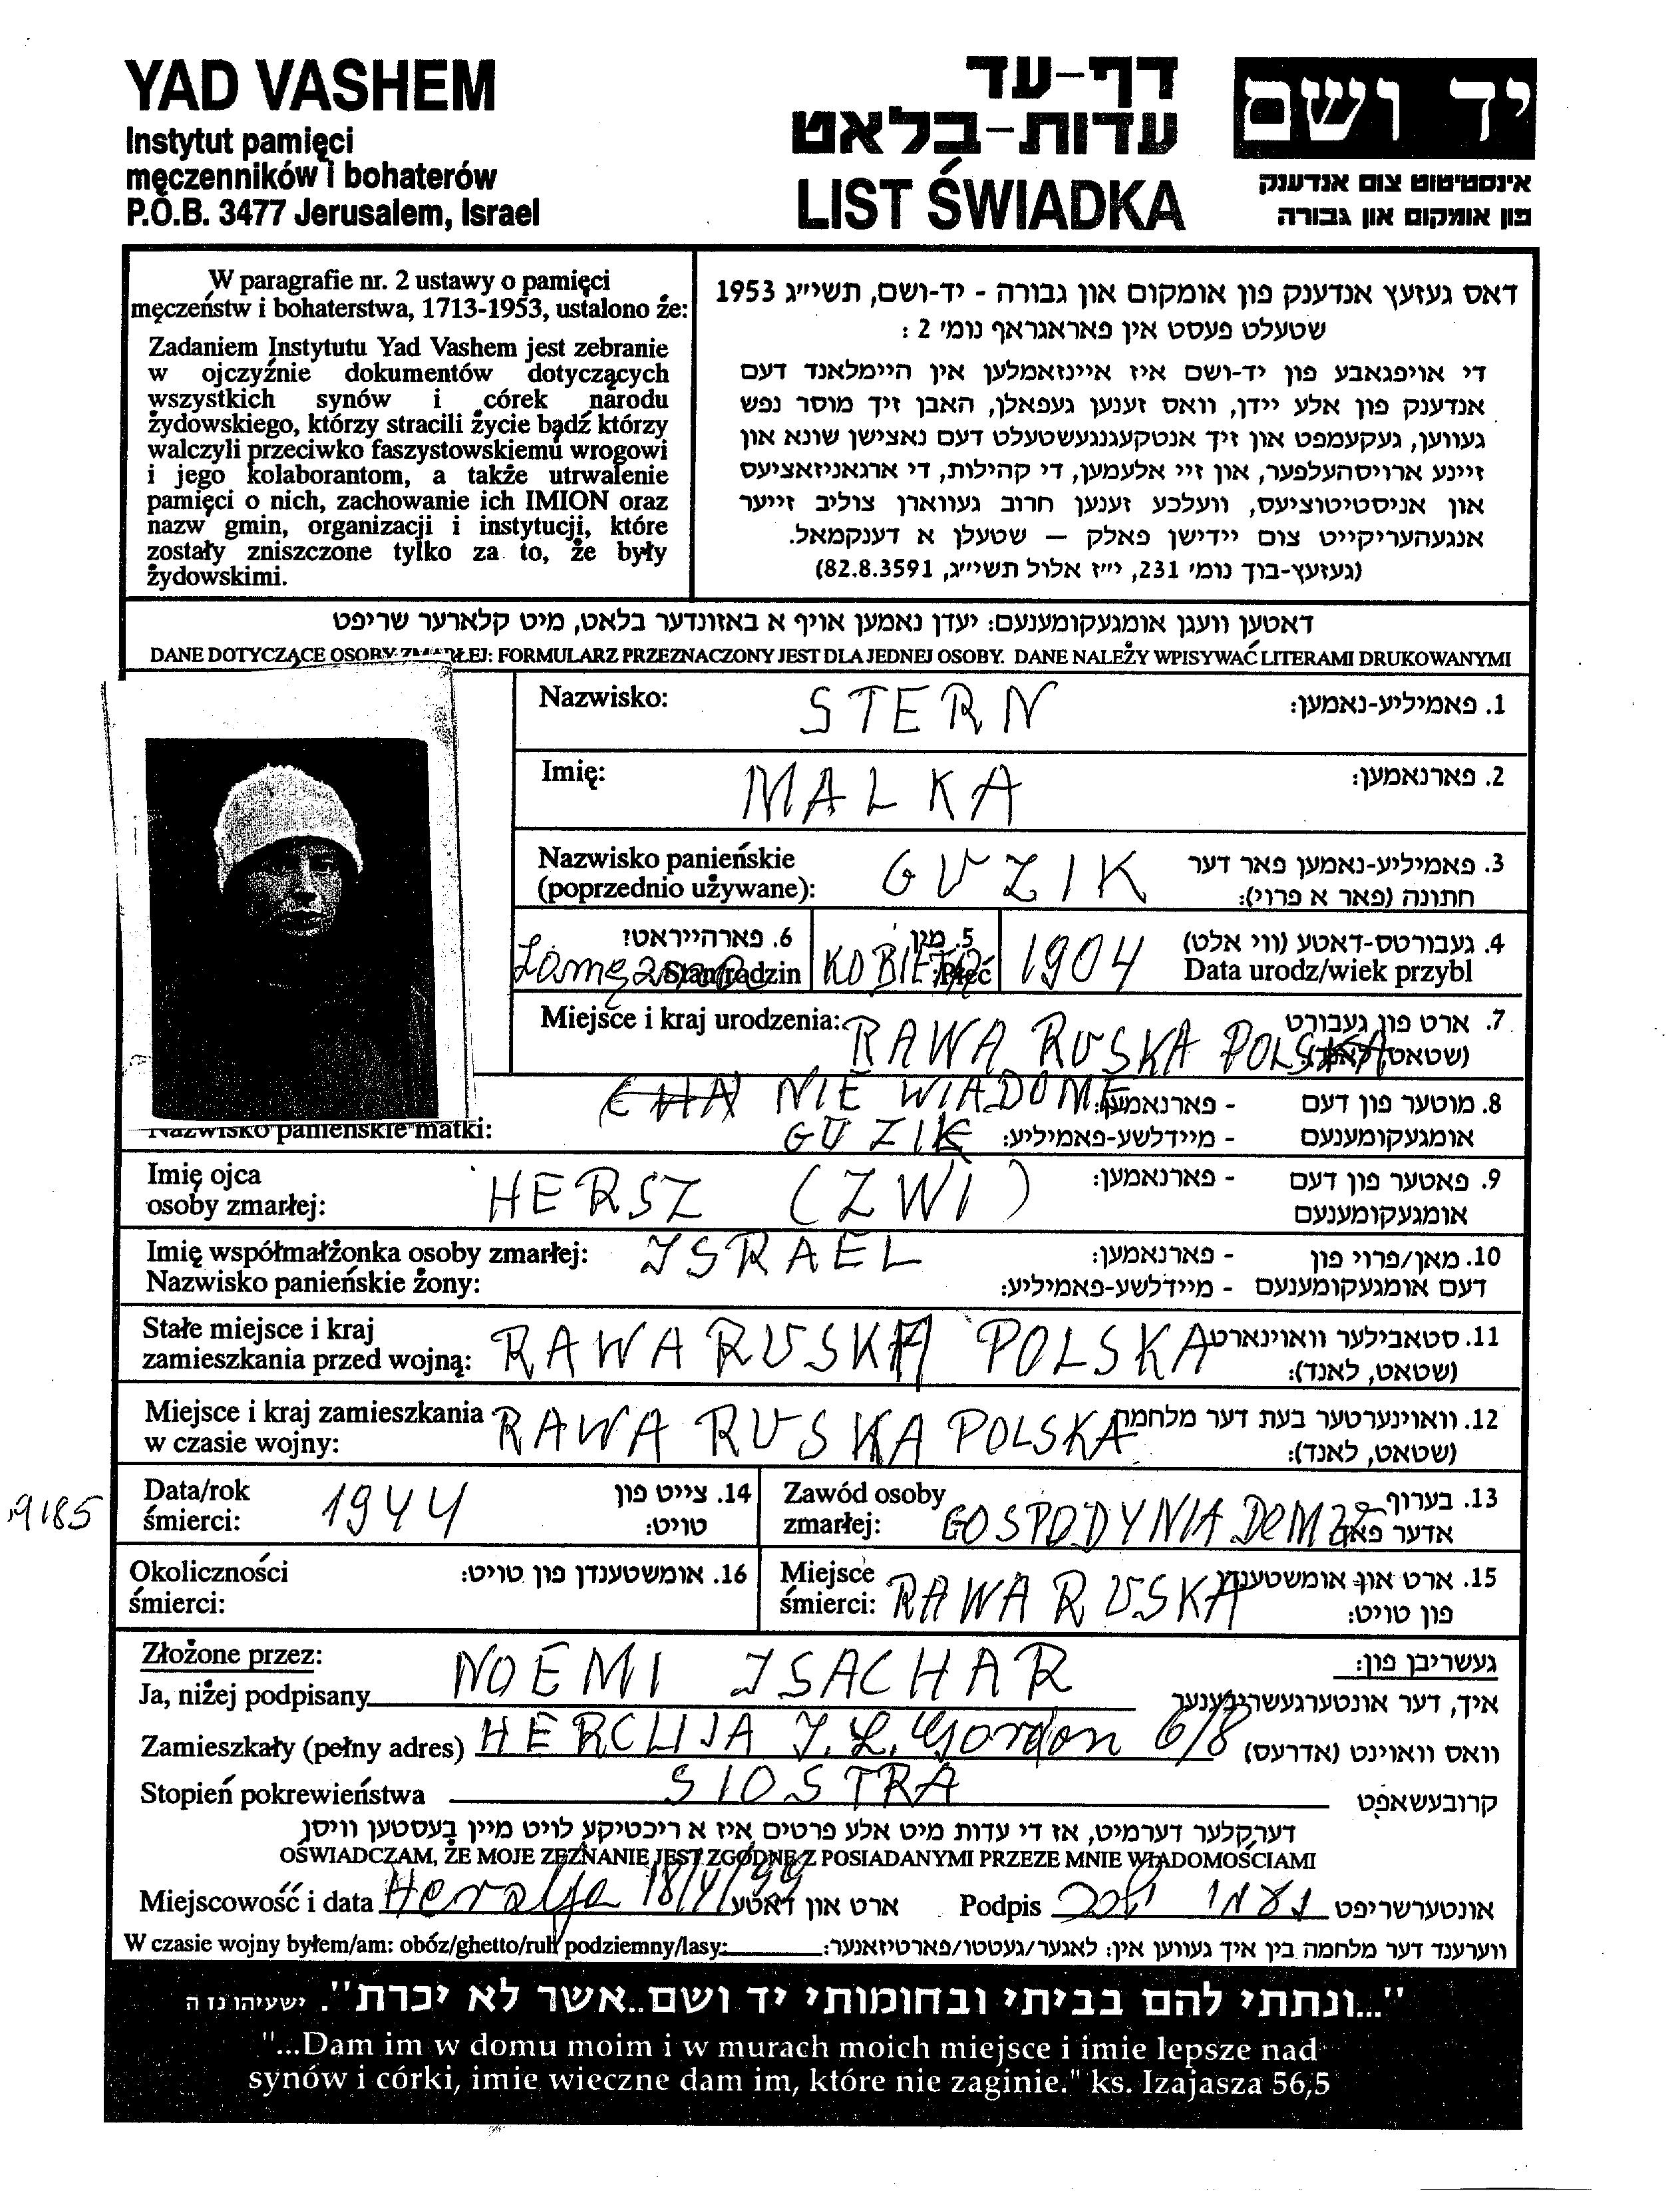 YAD VASHEM
Instytut pamięci
męczenników i bohaterów
P.O.B. 3477 Jerusalem, Israel
דף-עד
עדות-בלאט
LIST ŚWIADKA
יד ושם
אינסטיטוט צום אנדענק
פון אומקום און גבורה
W paragrafie nr. 2 ustawy o pamięci
męczeństw i bohaterstwa, 1713-1953, ustalono że:
Zadaniem Instytutu Yad Vashem jest zebranie
w ojczyźnie dokumentów dotyczących
wszystkich synów i córek narodu
żydowskiego, którzy stracili życie bądź którzy
walczyli przeciwko faszystowskiemu wrogowi
i jego kolaborantom, a także utrwalenie
pamięci o nich, zachowanie ich IMION oraz
nazw gmin, organizacji i instytucji, które
zostały zniszczone tylko za to, że były
żydowskimi.
דאס געזעץ אנדענק פון אומקום און גבורה - יד-ושם, תשי״ג 1953
שטעלט פעסט אין פאראגראף נומ׳ 2 :
די אויפגאבע פון יד-ושם איז איינזאמלען אין היימלאנד דעם
אנדענק פון אלע יידן, וואס זענען געפאלן, האבן זיך מוסר נפש
געווען, געקעמפט און זיך אנטקעגנגעשטעלט דעם נאצישן שונא און
זיינע ארויסהעלפער, און זיי אלעמען, די קהילות, די ארגאניזאציעס
און אניסטיטוציעס, וועלכע זענען חרוב געווארן צוליב זייער
אנגעהעריקייט צום יידישן פאלק – שטעלן א דענקמאל.
(געזעץ-בוך נומ׳ 231, י״ז אלול תשי״ג, 82.8.3591)
דאטען וועגן אומגעקומענעם: יעדן נאמען אויף א באזונדער בלאט, מיט קלארער שריפט
DANE DOTYCZĄCE OSOBY ZMARŁEJ: FORMULARZ PRZEZNACZONY JEST DLA JEDNEJ OSOBY. DANE NALEŻY WPISYWAĆ LITERAMI DRUKOWANYMI
Nazwisko: STERN 1. פאמיליע-נאמען:
Imię: MALKA 2. פארנאמען:
Nazwisko panieńskie GUZIK 3. פאמיליע-נאמען פאר דער
(poprzednio używane): חתונה (פאר א פרוי):
6. פארהייראט? 5. מין 4. געבורטס-דאטע (ווי אלט)
Stan rodzin KOBIETA Płeć 1904 Data urodz/wiek przybl
Miejsce i kraj urodzenia: RAWA RUSKA POLSKA 7. ארט פון געבורט
(שטאט, לאנד):
NIE WIADOME - פארנאמען: 8. מוטער פון דעם
Nazwisko panieńskie matki: GUZIK - מיידלשע-פאמיליע: אומגעקומענעם
Imię ojca HERSZ (ZWI) - פארנאמען: 9. פאטער פון דעם
osoby zmarłej: אומגעקומענעם
Imię współmałżonka osoby zmarłej: ISRAEL - פארנאמען: 10. מאן/פרוי פון
Nazwisko panieńskie żony: - מיידלשע-פאמיליע: דעם אומגעקומענעם
Stałe miejsce i kraj RAWA RUSKA POLSKA 11. סטאבילער וואוינארט
zamieszkania przed wojną: (שטאט, לאנד):
Miejsce i kraj zamieszkania RAWA RUSKA POLSKA 12. וואוינערטער בעת דער מלחמה
w czasie wojny: (שטאט, לאנד):
Data/rok 1944 14. צייט פון Zawód osoby GOSPODYNIA DOM 13. בערוף
śmierci: טויט: zmarłej: אדער פאך
9185
Okoliczności 16. אומשטענדן פון טויט: Miejsce RAWA RUSKA 15. ארט און אומשטענדן
śmierci: śmierci: פון טויט:
Złożone przez: NOEMI ISACHAR געשריבן פון:
Ja, niżej podpisany איך, דער אונטערגעשריבענער
Zamieszkały (pełny adres) HERCLIJA J. L. Gordon 6/8 וואס וואוינט (אדרעס)
Stopień pokrewieństwa SIOSTRA קרובעשאפט
דערקלער דערמיט, אז די עדות מיט אלע פרטים איז א ריכטיקע לויט מיין בעסטען וויסן
OŚWIADCZAM, ŻE MOJE ZEZNANIE JEST ZGODNE Z POSIADANYMI PRZEZE MNIE WIADOMOŚCIAMI
Miejscowość i data 18/4/99 ארט און דאטע Podpis נעמי אונטערשריפט
W czasie wojny byłem/am: obóz/ghetto/ruh podziemny/lasy: ווערענד דער מלחמה בין איך געווען אין: לאגער/געטטו/פארטיזאנער:
"...ונתתי להם בביתי ובחומותי יד ושם..אשר לא יכרת". ישעיהו נז ה
"...Dam im w domu moim i w murach moich miejsce i imie lepsze nad
synów i córki, imie wieczne dam im, które nie zaginie." ks. Izajasza 56,5